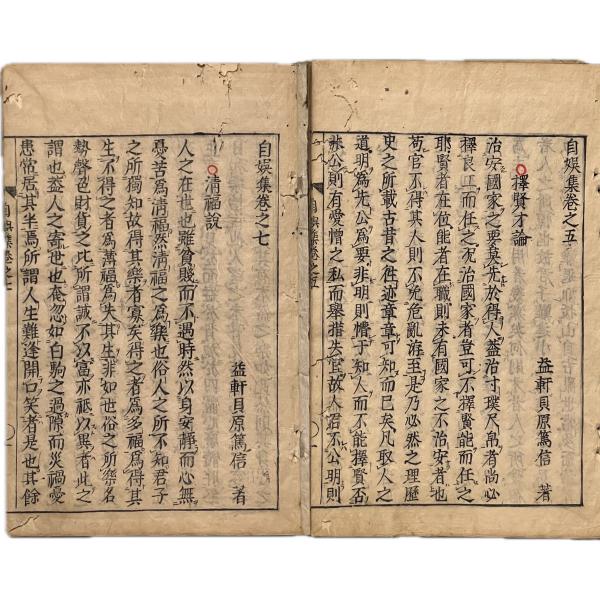 自娛集卷之五
益軒貝原篤信 著
擇賢才論
治安國家之要莫先於得人蓋治寸璞尺帛者尚必
擇良工而任之况治國家者豈可不擇賢能而任之
耶賢者在位能者在職則未有國家之不治安者也
苟官不得其人則不免危亂洊至是乃必然之理歷
史之所載古昔之徃迹章章可知而已矣凡取人之
道明爲先公爲要非明則懵于知人而不能擇賢否
非公則有愛憎之私而舉措失宜故人君不公明則
自娛集卷之七
益軒貝原篤信 著
清福說
人之在世也雖貧賤而不遇時然以身安靜而心無
憂苦爲清福然清福之爲樂也俗人之所不知君子
之所獨知故得其樂者寡矣得之者爲多福爲得其
生不得之者爲薄福爲失其生非如世俗之所樂名
勢聲色財貨之比所謂誠不以富亦祗以異者此之
謂也蓋人之寄世也奄忽如白駒之過隙而災禍憂
患常居其半焉所謂人生難逢開口笑者是也其餘
自娛集卷之七